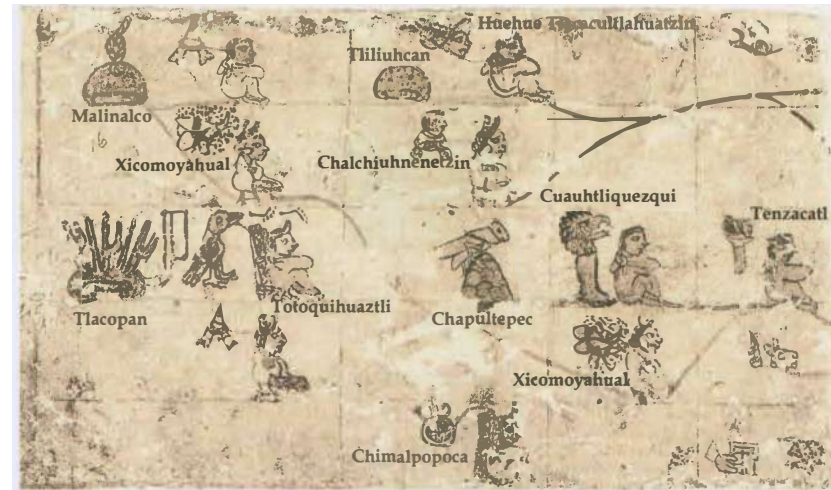 Malinalco
Tliliuhcan
Huehue
Xicomoyahual
Chalchiuhnenetzin
Cuauhtliquezqui
Tenzacatl
Tlacopan
Totoquihuaztli
Chapultepec
Xicomoyahual
Chimalpopoca